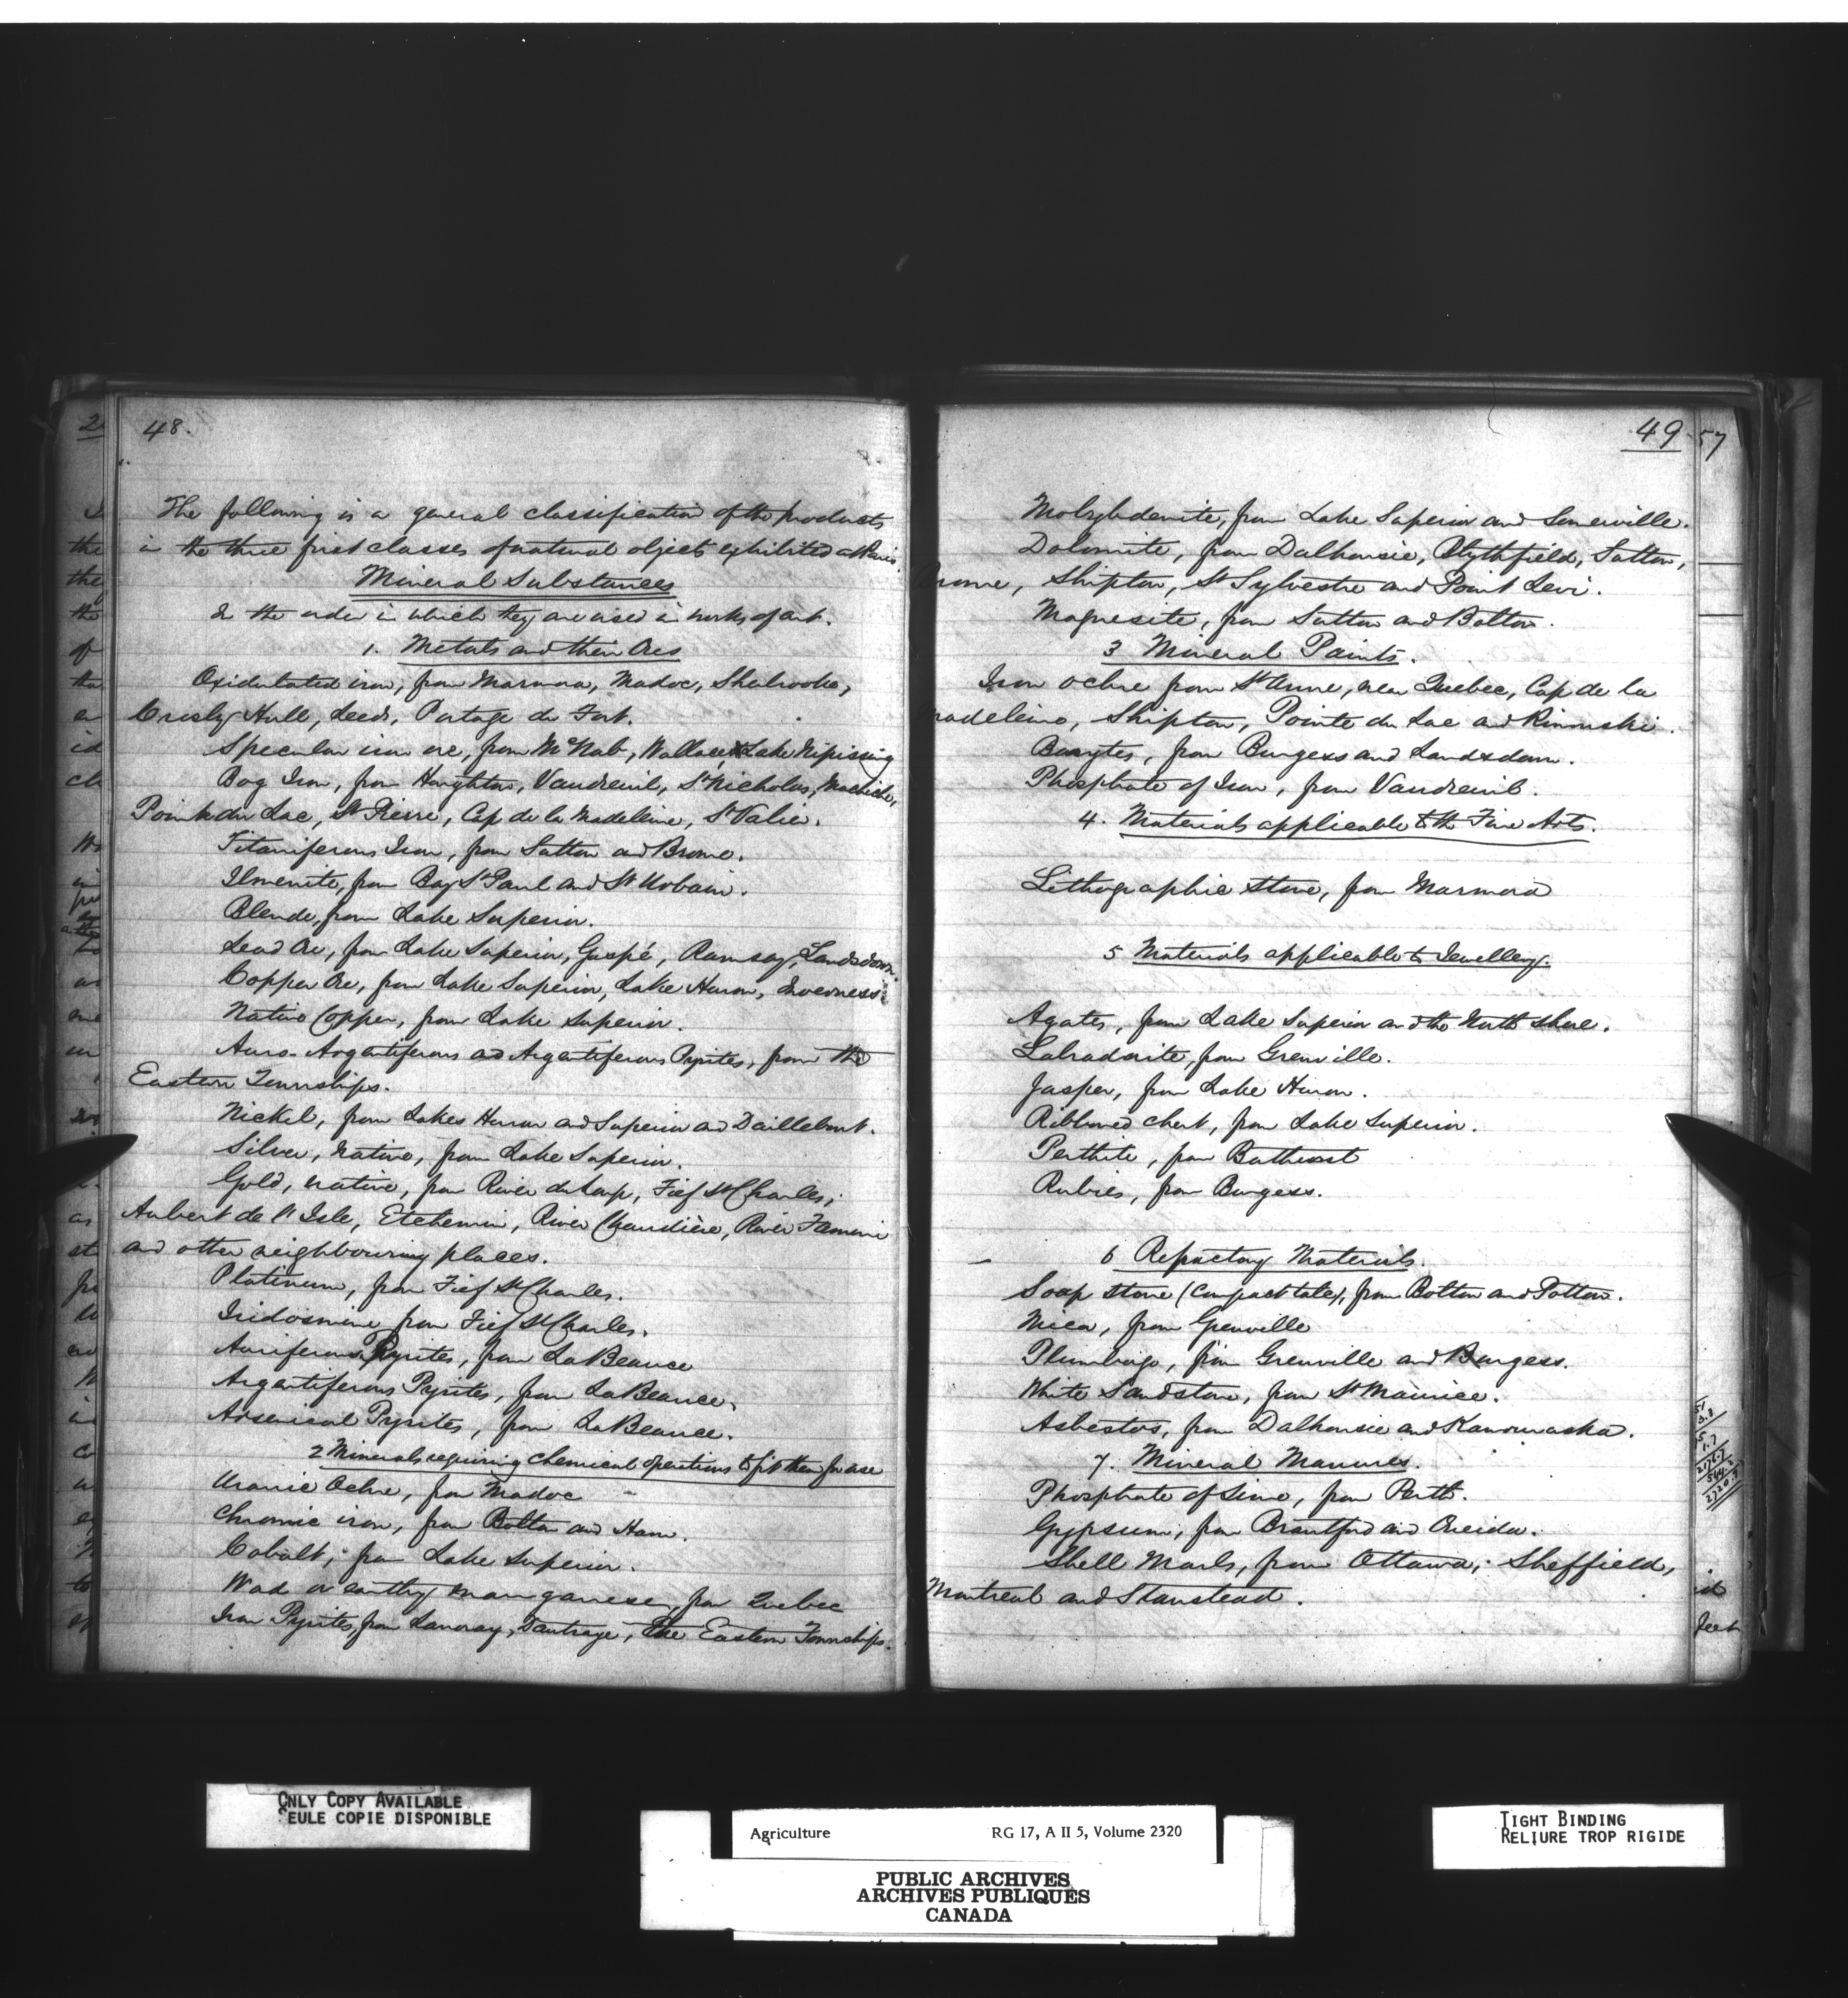 48.
The following is a general classification of the products
in the three first classes of natural objects exhibited at Paris.
Mineral Substances
In the order in which they are used in works of art.
1. Metals and their Ores
Oxidulated iron, from Marmora, Madoc, Sherbrooke,
Crosby, Hull, Leeds, Portage du Fort.
Specular iron ore, from McNab, Wallace, Lake Nipissing
Bog Iron, from Houghton, Vaudreuil, St Nicholas, Machiche,
Pointe du Lac, St Pierre, Cap de la Madeleine, St Valier.
Titaniferous Iron, from Sutton and Brome.
Ilmenite, from Bay St Paul and St Urbain.
Blende, from Lake Superior.
Lead Ore, from Lake Superior, Gaspé, Ramsay, Landsdown.
Copper Ore, from Lake Superior, Lake Huron, Inverness
Native Copper, from Lake Superior.
Auro-Argentiferous and Argentiferous Pyrites, from the
Eastern Townships.
Nickel, from Lakes Huron and Superior and Daillebout.
Silver, native, from Lake Superior.
Gold, native, from River du Loup, Fief St Charles,
Aubert de l'Isle, Etchemin, River Chaudière, River Famine
and other neighbouring places.
Platinum, from Fief St Charles.
Iridosmine from Fief St Charles.
Auriferous Pyrites, from La Beauce
Argentiferous Pyrites, from La Beauce.
Arsenical Pyrites, from La Beauce.
2 Minerals requiring chemical operations to fit them for use
Uranic Ochre, from Madoc
Chromic iron, from Bolton and Ham.
Cobalt, from Lake Superior.
Wad or earthy manganese, from Quebec
Iron Pyrites, from Lanoray, Dautraye, The Eastern Townships.
49
Molybdenite, from Lake Superior and Somerville.
Dolomite, from Dalhousie, Blythfield, Sutton,
Brome, Shipton, St Sylvestre and Point Levi.
Magnesite, from Sutton and Bolton.
3 Mineral Paints.
Iron ochre from St Anne, near Quebec, Cap de la
Madeleine, Shipton, Pointe du Lac and Rimouski.
Barytes, from Burgess and Landsdown.
Phosphate of Iron, from Vaudreuil.
4. Materials applicable to the Fine Arts.
Lithographic Stone, from Marmora
5 Materials applicable to Jewellery.
Agates, from Lake Superior and the North shore.
Labradorite, from Grenville.
Jasper, from Lake Huron.
Ribboned chert, from Lake Superior.
Perthite, from Bathurst
Rubies, from Burgess.
6 Refractory Materials.
Soap stone (Compact talc), from Bolton and Potton.
Mica, from Grenville
Plumbago, from Grenville and Burgess.
White Sandstone, from St Maurice.
Asbestos, from Dalhousie and Kamouraska.
7. Mineral Manures.
Phosphate of Lime, from Perth.
Gypsum, from Brantford and Oneida.
Shell Marls, from Ottawa, Sheffield,
Montreal and Stanstead.
57
ONLY COPY AVAILABLE
SEULE COPIE DISPONIBLE
Agriculture RG 17, A II 5, Volume 2320
PUBLIC ARCHIVES
ARCHIVES PUBLIQUES
CANADA
TIGHT BINDING
RELIURE TROP RIGIDE